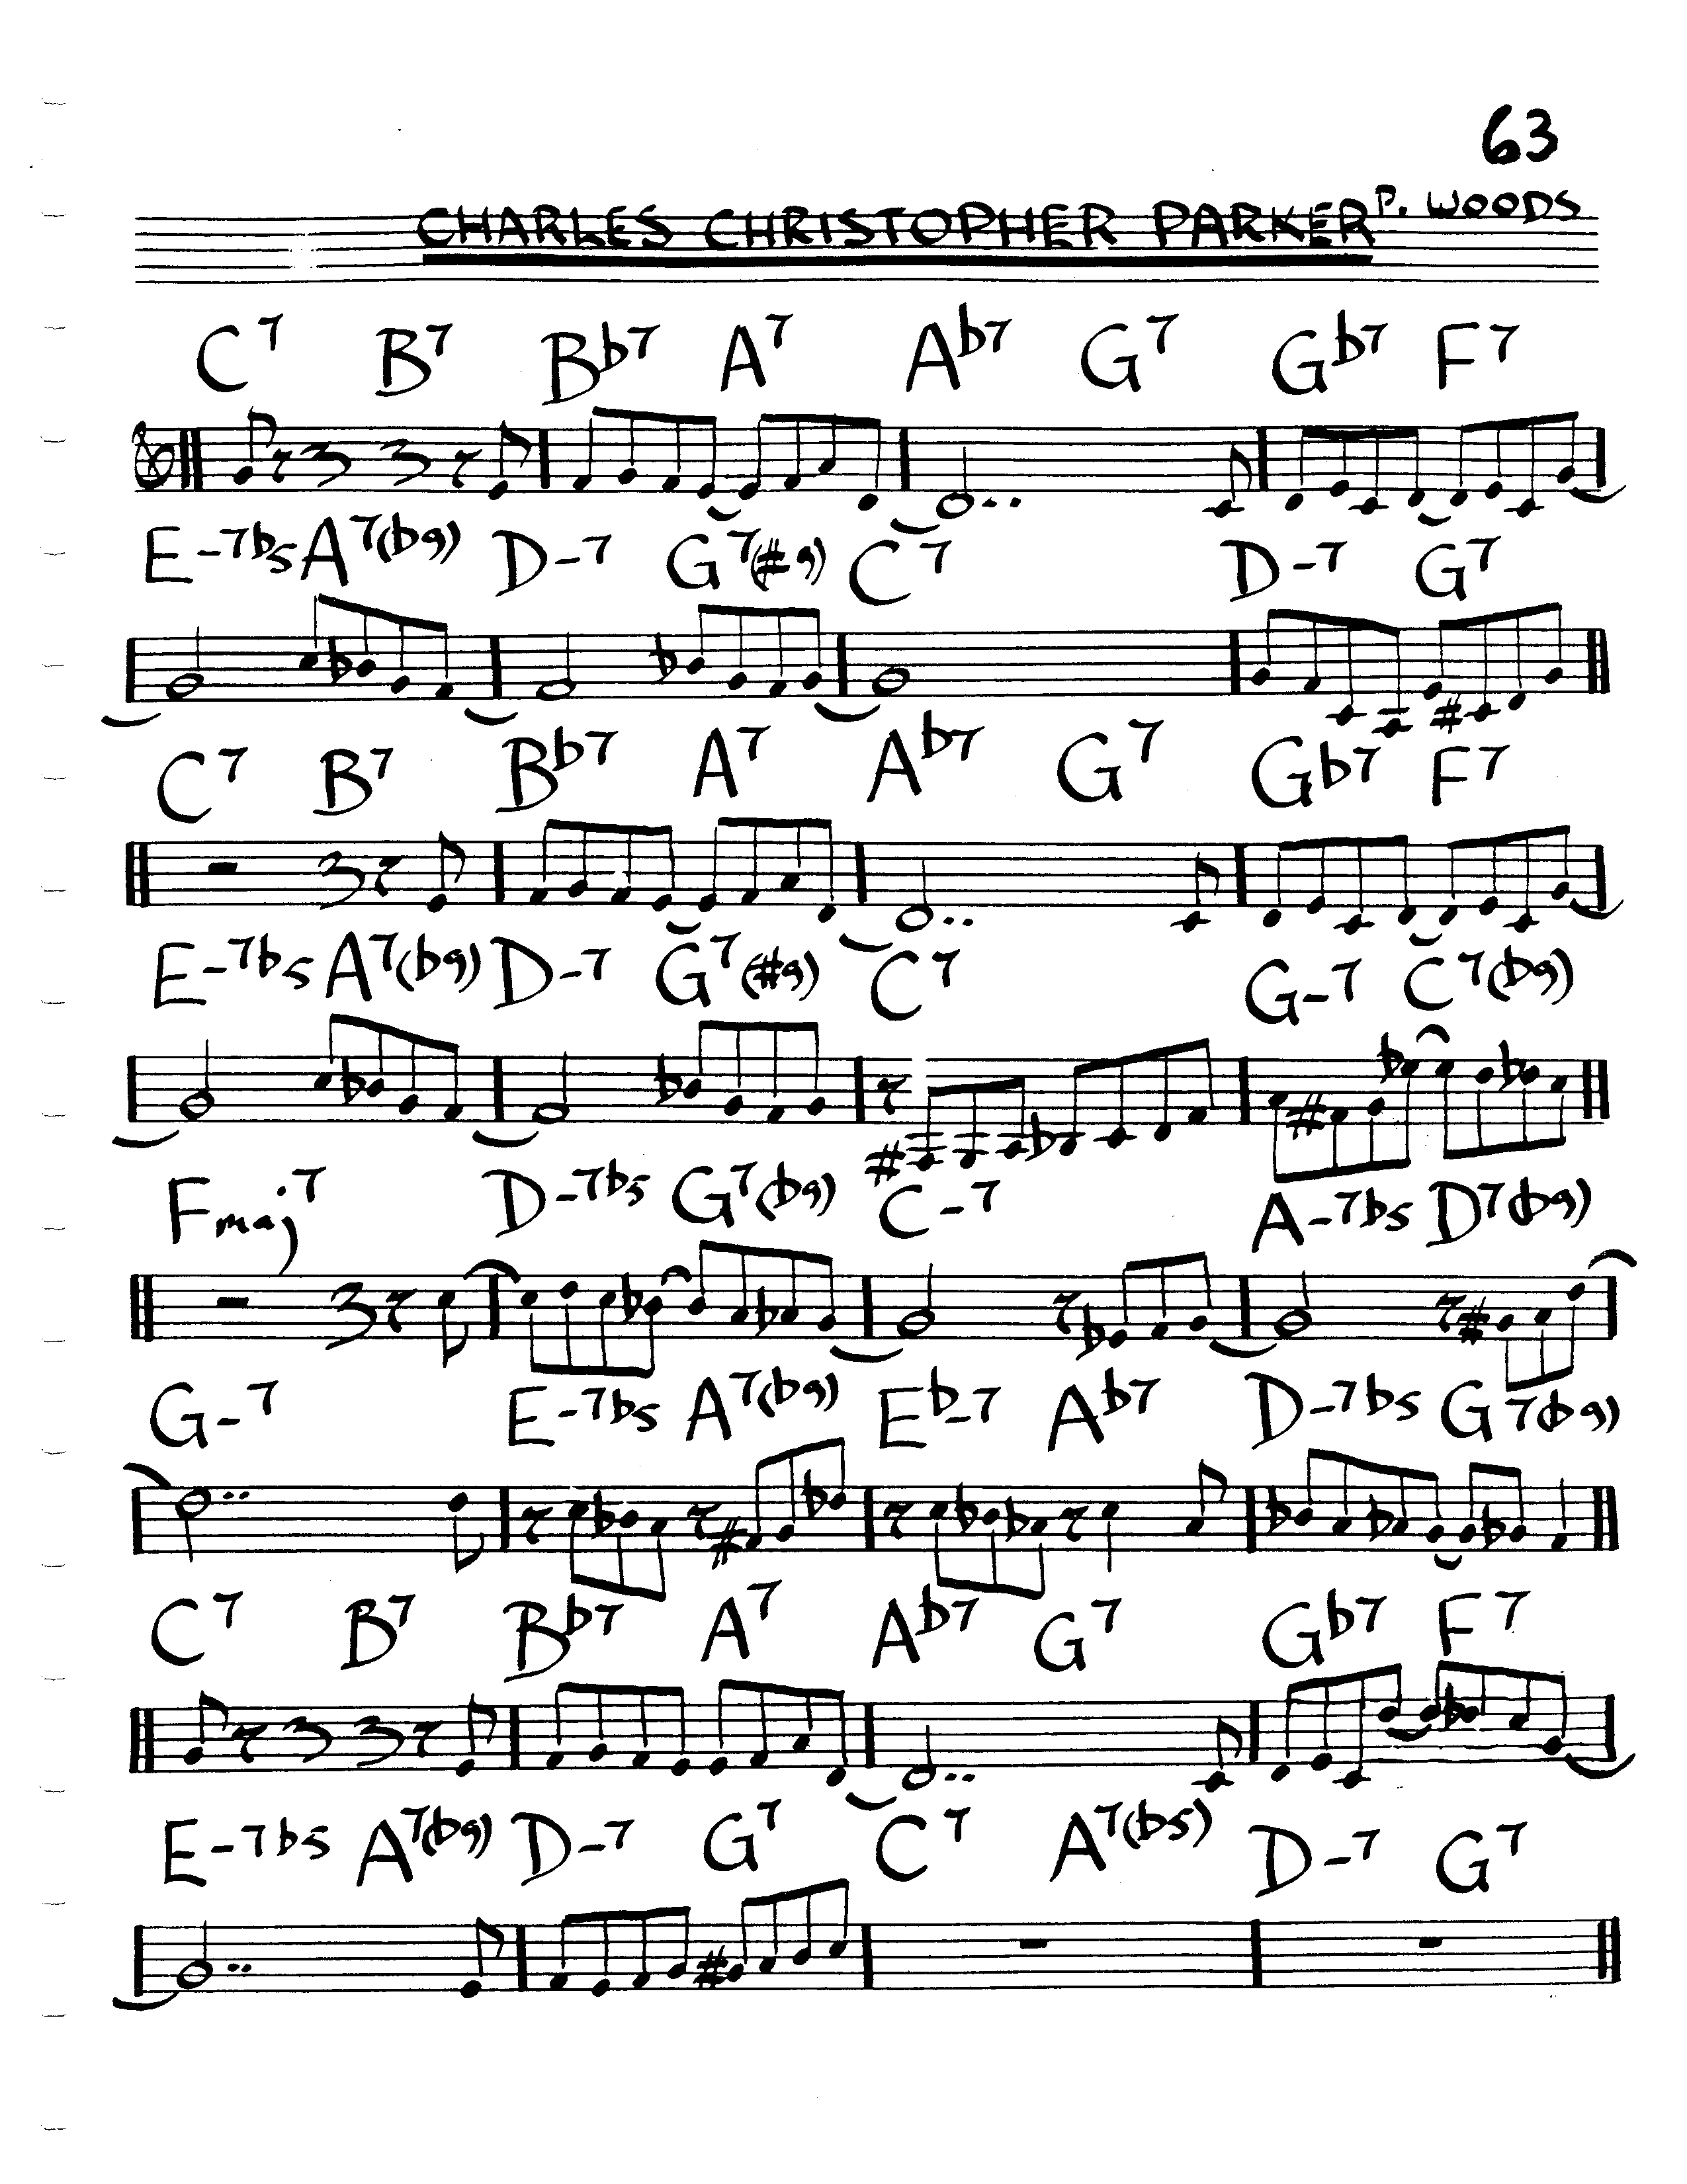 63
CHARLES CHRISTOPHER PARKER P. WOODS
C7 B7 Bb7 A7 Ab7 G7 Gb7 F7
E-7b5 A7(b9) D-7 G7(#9) C7 D-7 G7
C7 B7 Bb7 A7 Ab7 G7 Gb7 F7
E-7b5 A7(b9) D-7 G7(#9) C7 G-7 C7(b9)
Fmaj7 D-7b5 G7(b9) C-7 A-7b5 D7(b9)
G-7 E-7b5 A7(b9) Eb-7 Ab7 D-7b5 G7(b9)
C7 B7 Bb7 A7 Ab7 G7 Gb7 F7
E-7b5 A7(b9) D-7 G7 C7 A7(b5) D-7 G7